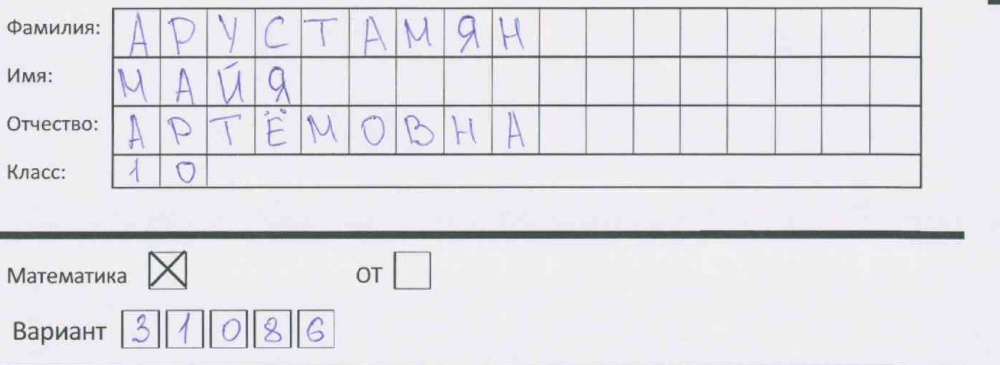 Фамилия: АРУСТАМЯН
Имя: МАЙЯ
Отчество: АРТЁМОВНА
Класс: 10
Математика ОТ
Вариант 31086